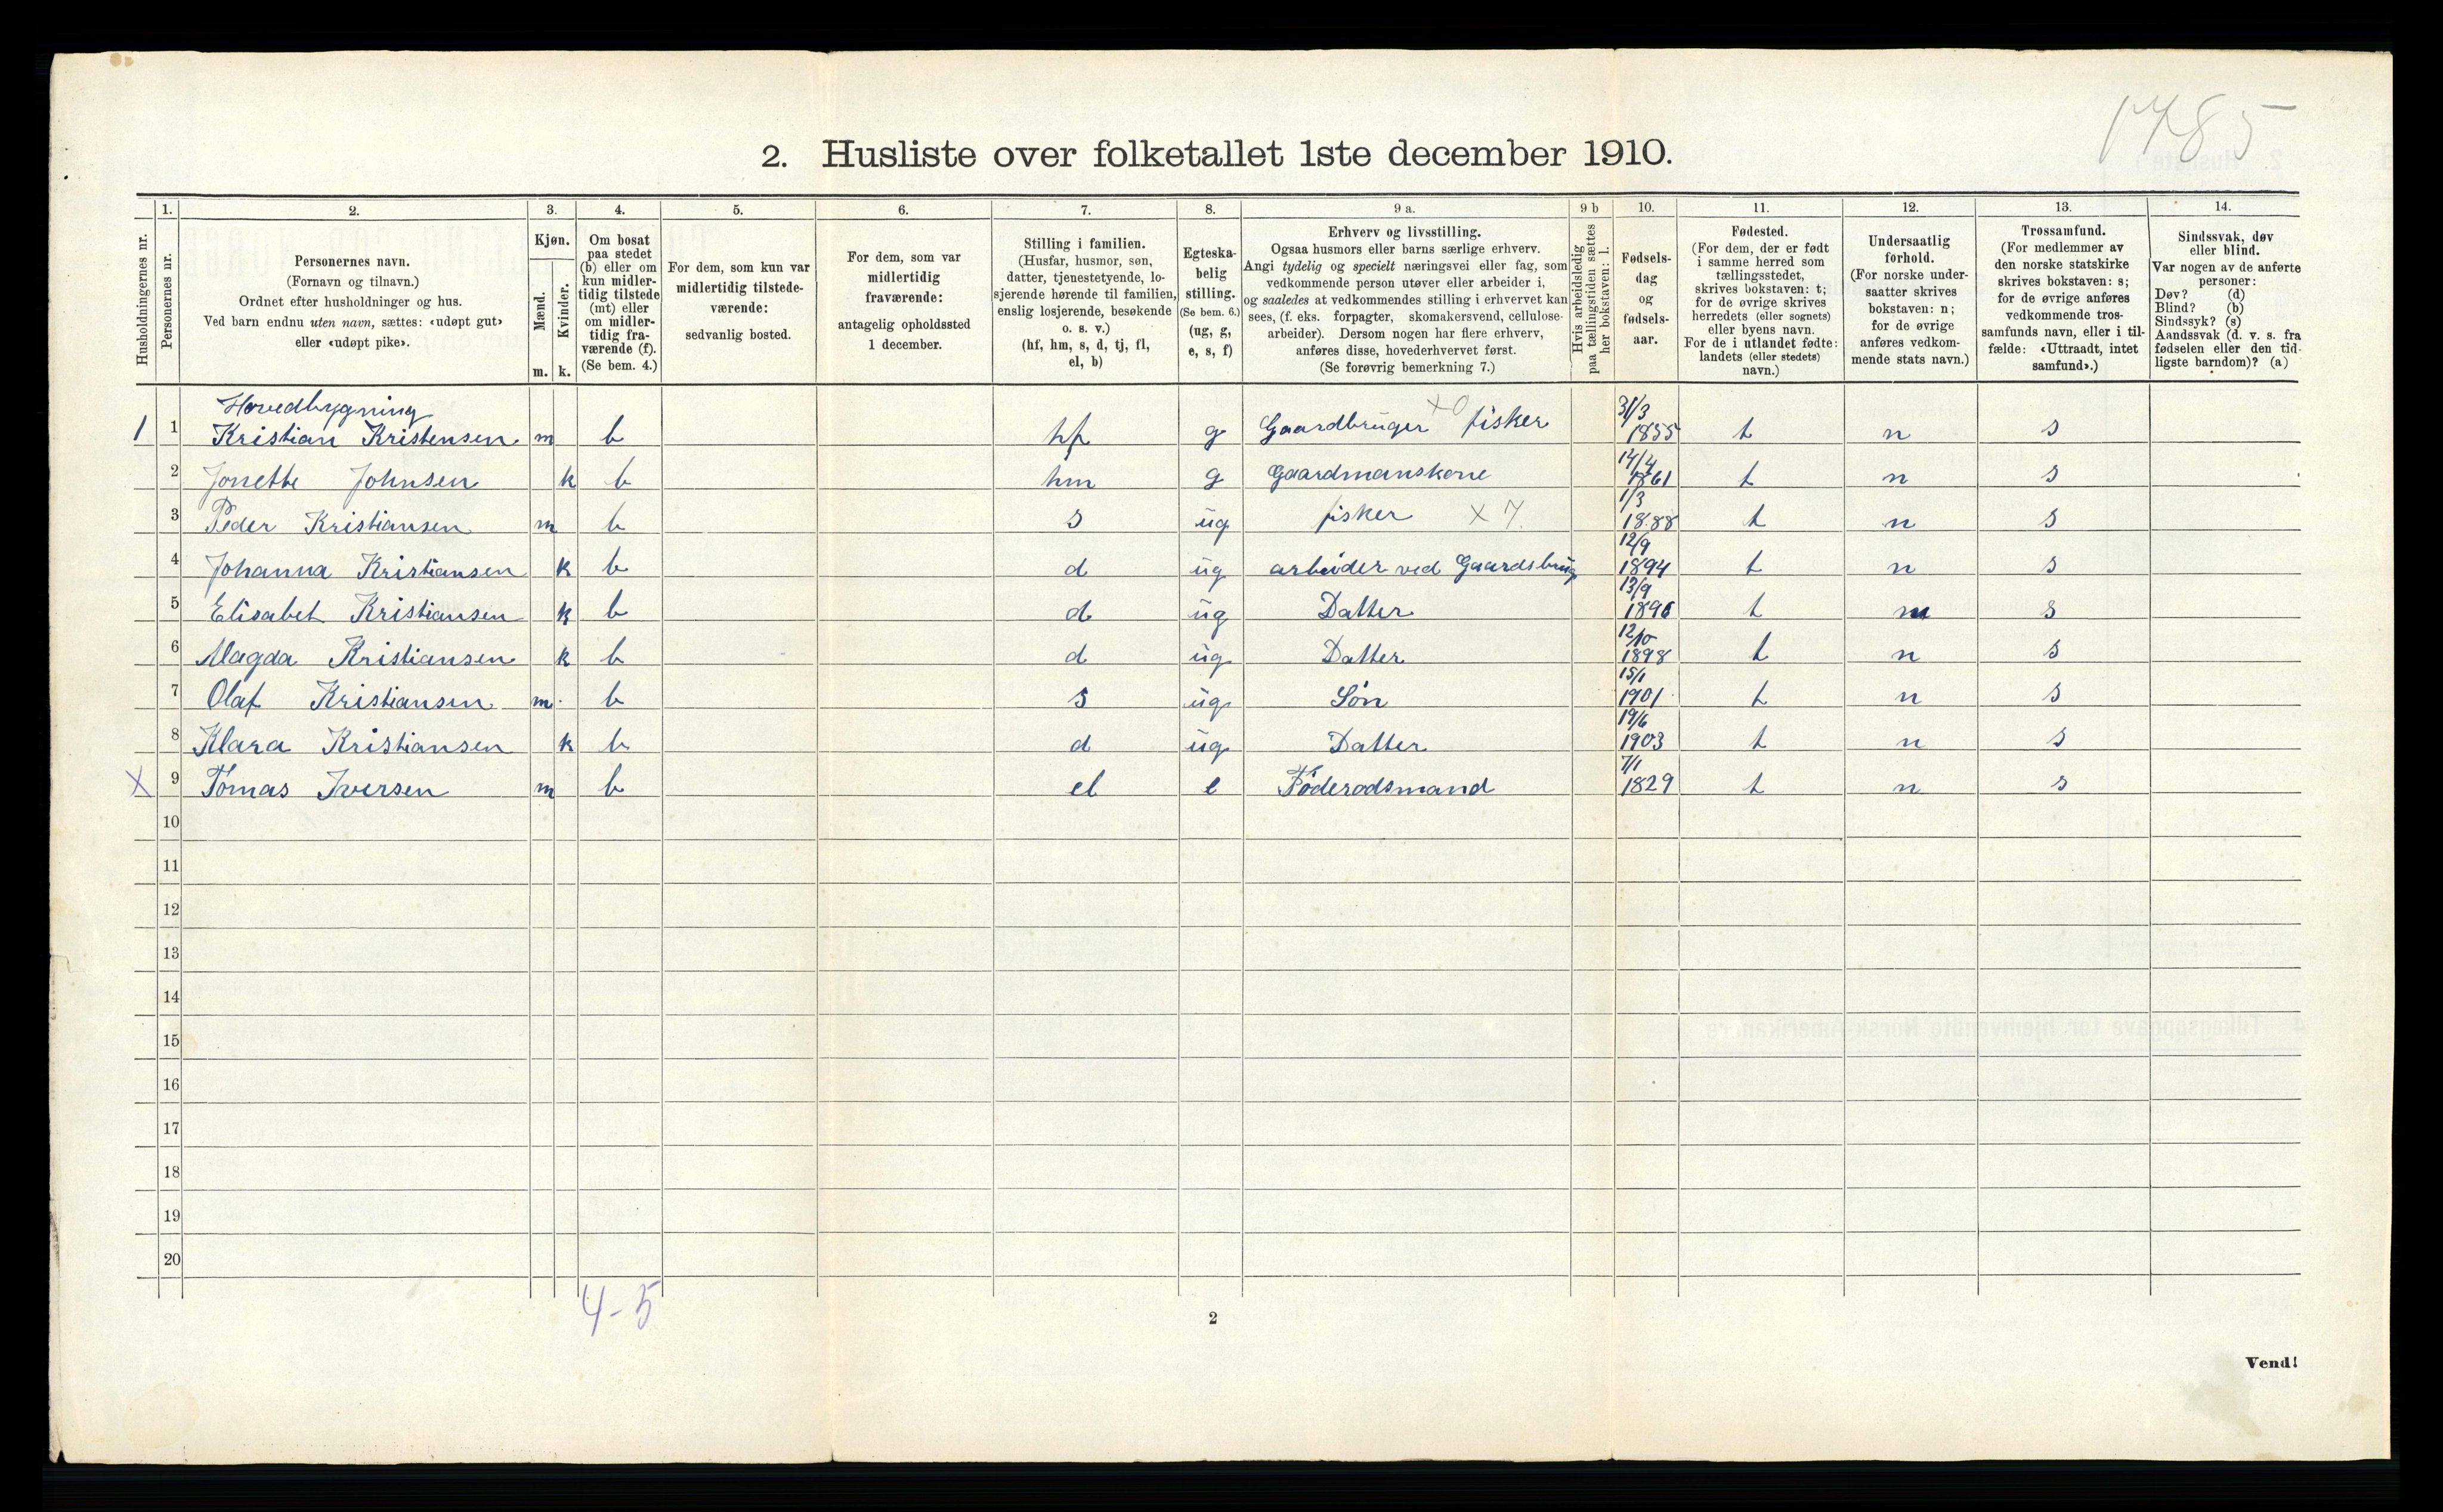 1785
2. Husliste over folketallet 1ste december 1910.
Husholdningernes nr.
1.
Personernes nr.
2.
Personernes navn.
(Fornavn og tilnavn.)
Ordnet efter husholdninger og hus.
Ved barn endnu uten navn, sættes: «udøpt gut»
eller «udøpt pike».
3.
Kjøn.
Mænd.
Kvinder.
m. k.
4.
Om bosat
paa stedet
(b) eller om
kun midler-
tidig tilstede
(mt) eller
om midler-
tidig fra-
værende (f).
(Se bem. 4.)
5.
For dem, som kun var
midlertidig tilstede-
værende:
sedvanlig bosted.
6.
For dem, som var
midlertidig
fraværende:
antagelig opholdssted
1 december.
7.
Stilling i familien.
(Husfar, husmor, søn,
datter, tjenestetyende, lo-
sjerende hørende til familien,
enslig losjerende, besøkende
o. s. v.)
(hf, hm, s, d, tj, fl,
el, b)
8.
Egteska-
belig
stilling.
(Se bem. 6.)
(ug, g,
e, s, f)
9 a.
Erhverv og livsstilling.
Ogsaa husmors eller barns særlige erhverv.
Angi tydelig og specielt næringsvei eller fag, som
vedkommende person utøver eller arbeider i,
og saaledes at vedkommendes stilling i erhvervet kan
sees, (f. eks. forpagter, skomakersvend, cellulose-
arbeider). Dersom nogen har flere erhverv,
anføres disse, hovederhvervet først.
(Se forøvrig bemerkning 7.)
9 b
Hvis arbeidsledig
paa tællingstiden sættes
her bokstaven: l.
10.
Fødsels-
dag
og
fødsels-
aar.
11.
Fødested.
(For dem, der er født
i samme herred som
tællingsstedet,
skrives bokstaven: t;
for de øvrige skrives
herredets (eller sognets)
eller byens navn.
For de i utlandet fødte:
landets (eller stedets)
navn.)
12.
Undersaatlig
forhold.
(For norske under-
saatter skrives
bokstaven: n;
for de øvrige
anføres vedkom-
mende stats navn.)
13.
Trossamfund.
(For medlemmer av
den norske statskirke
skrives bokstaven: s;
for de øvrige anføres
vedkommende tros-
samfunds navn, eller i til-
fælde: «Uttraadt, intet
samfund».)
14.
Sindssvak, døv
eller blind.
Var nogen av de anførte
personer:
Døv? (d)
Blind? (b)
Sindssyk? (s)
Aandssvak (d. v. s. fra
fødselen eller den tid-
ligste barndom)? (a)
Hovedbygning
1 1 Kristian Kristensen m b hf g Gaardbruger x0 fisker 31/3 1855 t n s
2 Jonette Johnsen k b hm g Gaardmanskone 14/4 1861 t n s
3 Peder Kristiansen m b s ug fisker x 7. 1/3 1888 t n s
4 Johanna Kristiansen k b d ug arbeider ved Gaardsbrug 12/9 1894 t n s
5 Elisabet Kristiansen k b d ug Datter 13/9 1896 t n s
6 Magda Kristiansen k b d ug Datter 12/10 1898 t n s
7 Olaf Kristiansen m. b s ug Søn 15/1 1901 t n s
8 Klara Kristiansen k b d ug Datter 19/6 1903 t n s
X 9 Tomas Iversen m b el e Føderodsmand 7/1 1829 t n s
10
11
12
13
14
15
16
17
18
19
20
4-5
2
Vend!